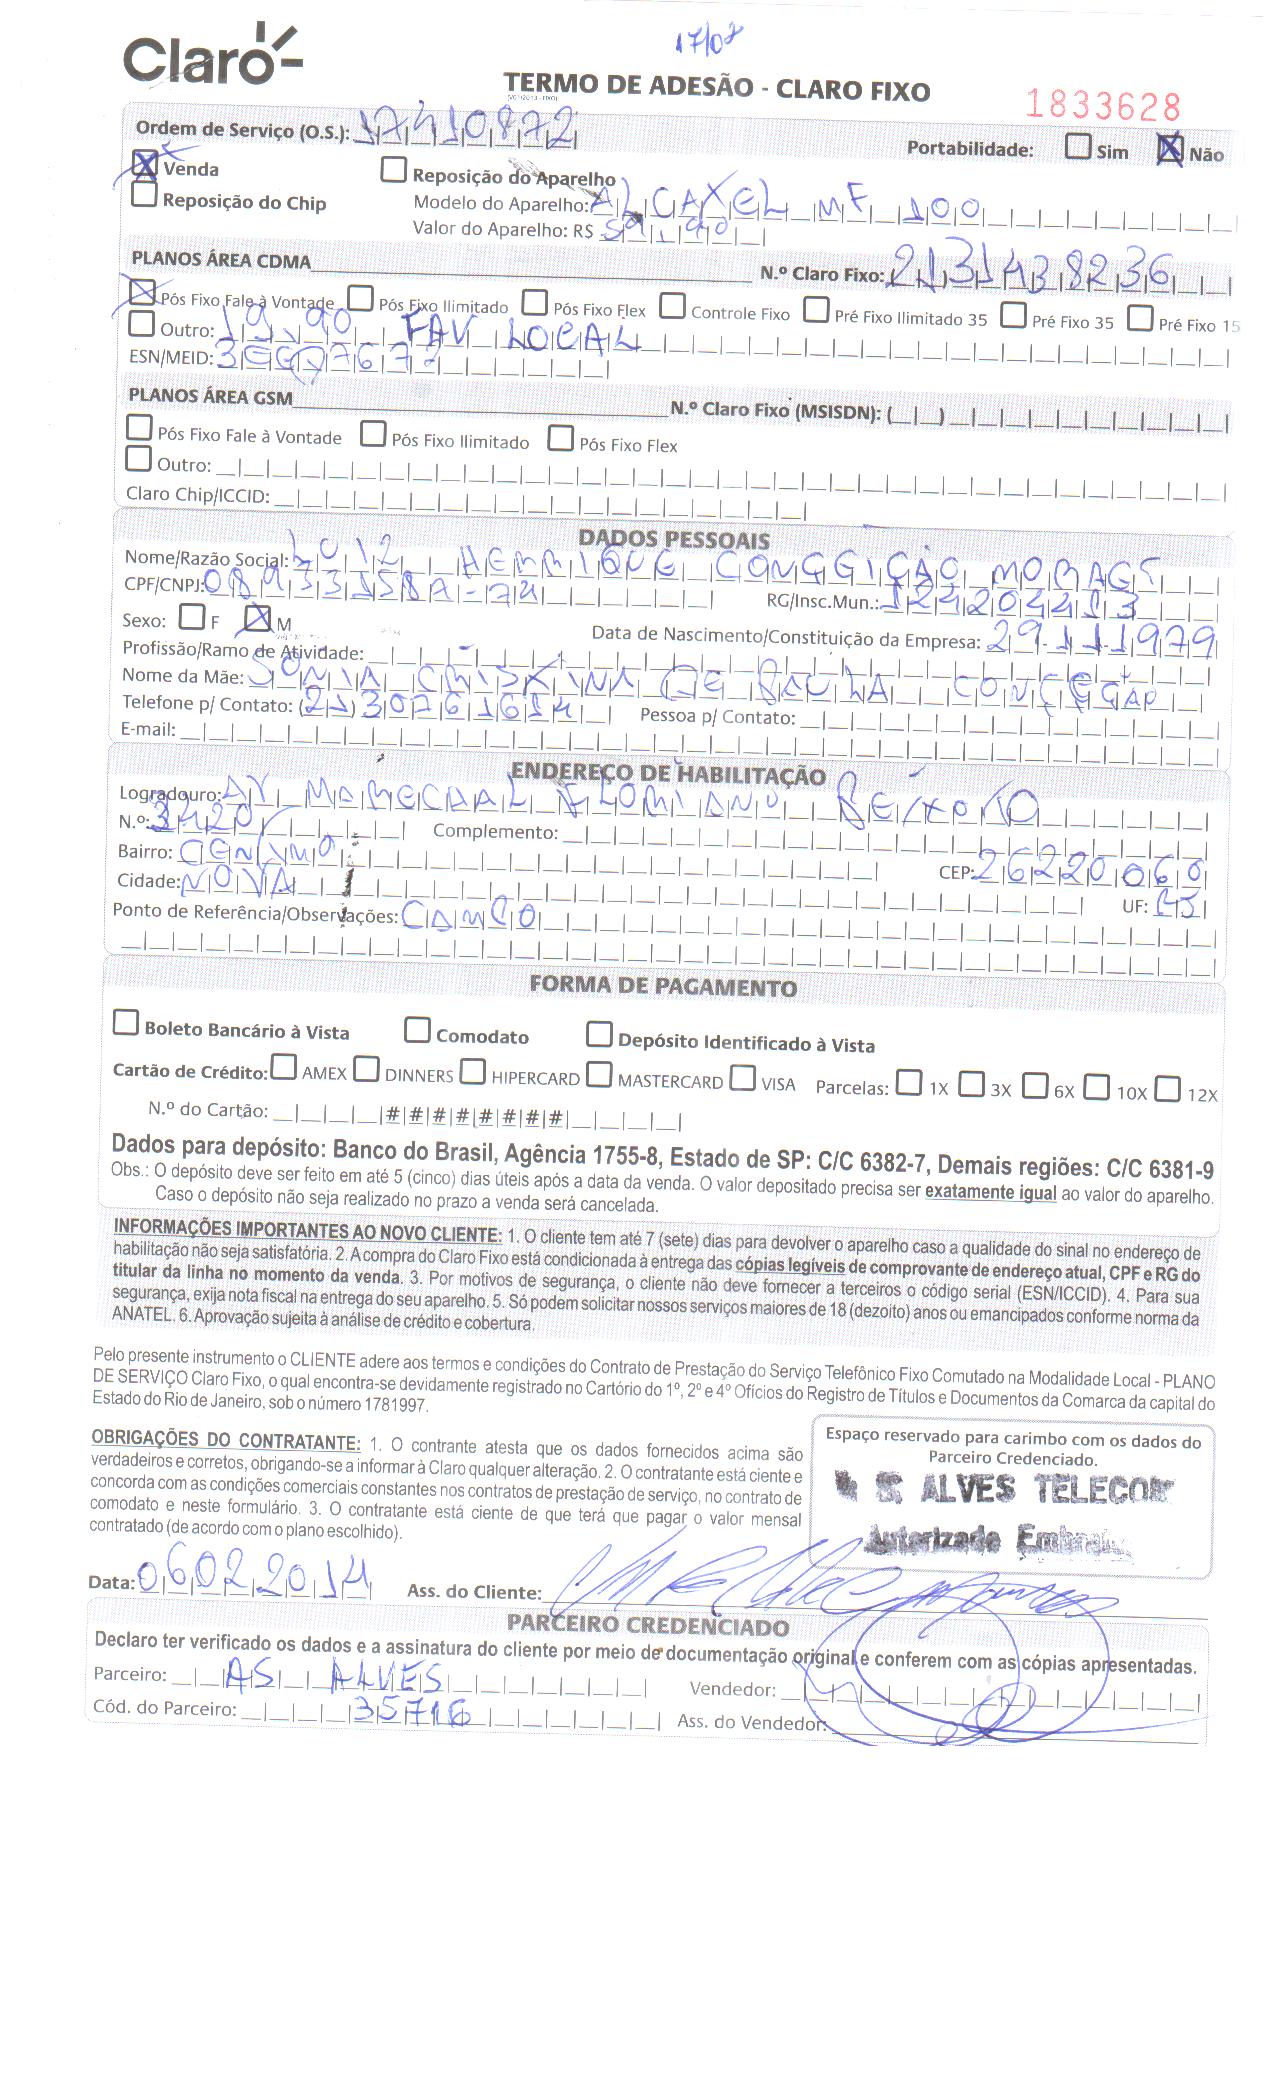 17/02
Claro
TERMO DE ADESÃO - CLARO FIXO
1833628
Ordem de Serviço (O.S.): 17410872 Portabilidade: Sim X Não
X Venda Reposição do Aparelho
Reposição do Chip Modelo do Aparelho: ALCAXEL MF 100
Valor do Aparelho: R$ 59,90
PLANOS ÁREA CDMA N.º Claro Fixo: (21) 31438236
X Pós Fixo Fale à Vontade Pós Fixo Ilimitado Pós Fixo Flex Controle Fixo Pré Fixo Ilimitado 35 Pré Fixo 35 Pré Fixo 15
Outro: 19,90 FAV LOCAL
ESN/MEID:
PLANOS ÁREA GSM N.º Claro Fixo (MSISDN): ( )
Pós Fixo Fale à Vontade Pós Fixo Ilimitado Pós Fixo Flex
Outro:
Claro Chip/ICCID:
DADOS PESSOAIS
Nome/Razão Social: LUIZ HENRIQUE CONCEIÇÃO MORAES
CPF/CNPJ: RG/Insc.Mun.:
Sexo: F X M Data de Nascimento/Constituição da Empresa: 29.11.1979
Profissão/Ramo de Atividade:
Nome da Mãe: SONIA CRISTINA DE PAULA CONCEÇÃO
Telefone p/ Contato: (21) 30761614 Pessoa p/ Contato:
E-mail:
ENDEREÇO DE HABILITAÇÃO
Logradouro: AV MARECHAL FLORIANO PEIXOTO
N.º: 3420 Complemento:
Bairro: CENTRO CEP: 26220060
Cidade: NOVA I UF: RJ
Ponto de Referência/Observações:
FORMA DE PAGAMENTO
Boleto Bancário à Vista Comodato Depósito Identificado à Vista
Cartão de Crédito: AMEX DINNERS HIPERCARD MASTERCARD VISA Parcelas: 1X 3X 6X 10X 12X
N.º do Cartão: # # # # # # # #
Dados para depósito: Banco do Brasil, Agência 1755-8, Estado de SP: C/C 6382-7, Demais regiões: C/C 6381-9
Obs.: O depósito deve ser feito em até 5 (cinco) dias úteis após a data da venda. O valor depositado precisa ser exatamente igual ao valor do aparelho.
Caso o depósito não seja realizado no prazo a venda será cancelada.
INFORMAÇÕES IMPORTANTES AO NOVO CLIENTE: 1. O cliente tem até 7 (sete) dias para devolver o aparelho caso a qualidade do sinal no endereço de
habilitação não seja satisfatória. 2. A compra do Claro Fixo está condicionada à entrega das cópias legíveis de comprovante de endereço atual, CPF e RG do
titular da linha no momento da venda. 3. Por motivos de segurança, o cliente não deve fornecer a terceiros o código serial (ESN/ICCID). 4. Para sua
segurança, exija nota fiscal na entrega do seu aparelho. 5. Só podem solicitar nossos serviços maiores de 18 (dezoito) anos ou emancipados conforme norma da
ANATEL. 6. Aprovação sujeita à análise de crédito e cobertura.
Pelo presente instrumento o CLIENTE adere aos termos e condições do Contrato de Prestação do Serviço Telefônico Fixo Comutado na Modalidade Local - PLANO
DE SERVIÇO Claro Fixo, o qual encontra-se devidamente registrado no Cartório do 1º, 2º e 4º Ofícios do Registro de Títulos e Documentos da Comarca da capital do
Estado do Rio de Janeiro, sob o número 1781997.
OBRIGAÇÕES DO CONTRATANTE: 1. O contrante atesta que os dados fornecidos acima são
verdadeiros e corretos, obrigando-se a informar à Claro qualquer alteração. 2. O contratante está ciente e
concorda com as condições comerciais constantes nos contratos de prestação de serviço, no contrato de
comodato e neste formulário. 3. O contratante está ciente de que terá que pagar o valor mensal
contratado (de acordo com o plano escolhido).
Espaço reservado para carimbo com os dados do
Parceiro Credenciado.
S ALVES TELECOM
Autorizado
Data: 06022014 Ass. do Cliente:
PARCEIRO CREDENCIADO
Declaro ter verificado os dados e a assinatura do cliente por meio de documentação original e conferem com as cópias apresentadas.
Parceiro: AS ALVES Vendedor:
Cód. do Parceiro: 35716 Ass. do Vendedor: